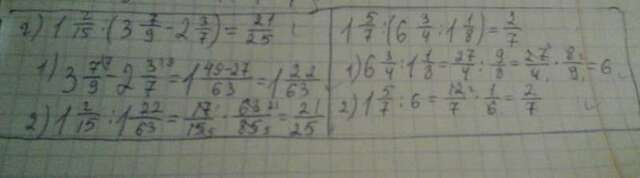 г) 1 2/15 : (3 7/9 - 2 3/7) = 21/25
1) 3 7/9 - 2 3/7 = 1 49-27/63 = 1 22/63
2) 1 2/15 : 1 22/63 = 17/15 · 63/85 = 21/25
1 5/7 : (6 3/4 : 1 1/8) = 2/7
1) 6 3/4 : 1 1/8 = 27/4 : 9/8 = 27/4 · 8/9 = 6
2) 1 5/7 : 6 = 12/7 · 1/6 = 2/7